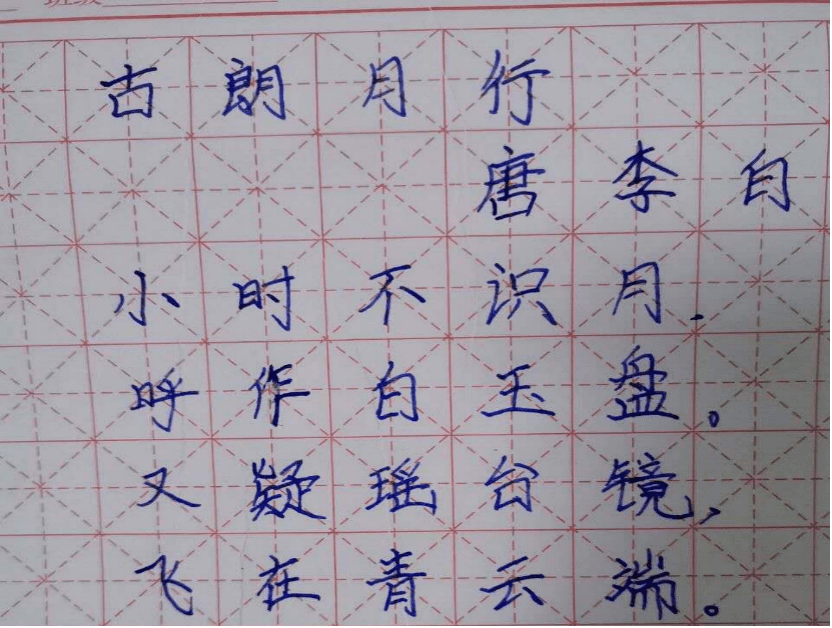 古朗月行
唐李白
小时不识月.
呼作白玉盘。
又疑瑶台镜,
飞在青云端。